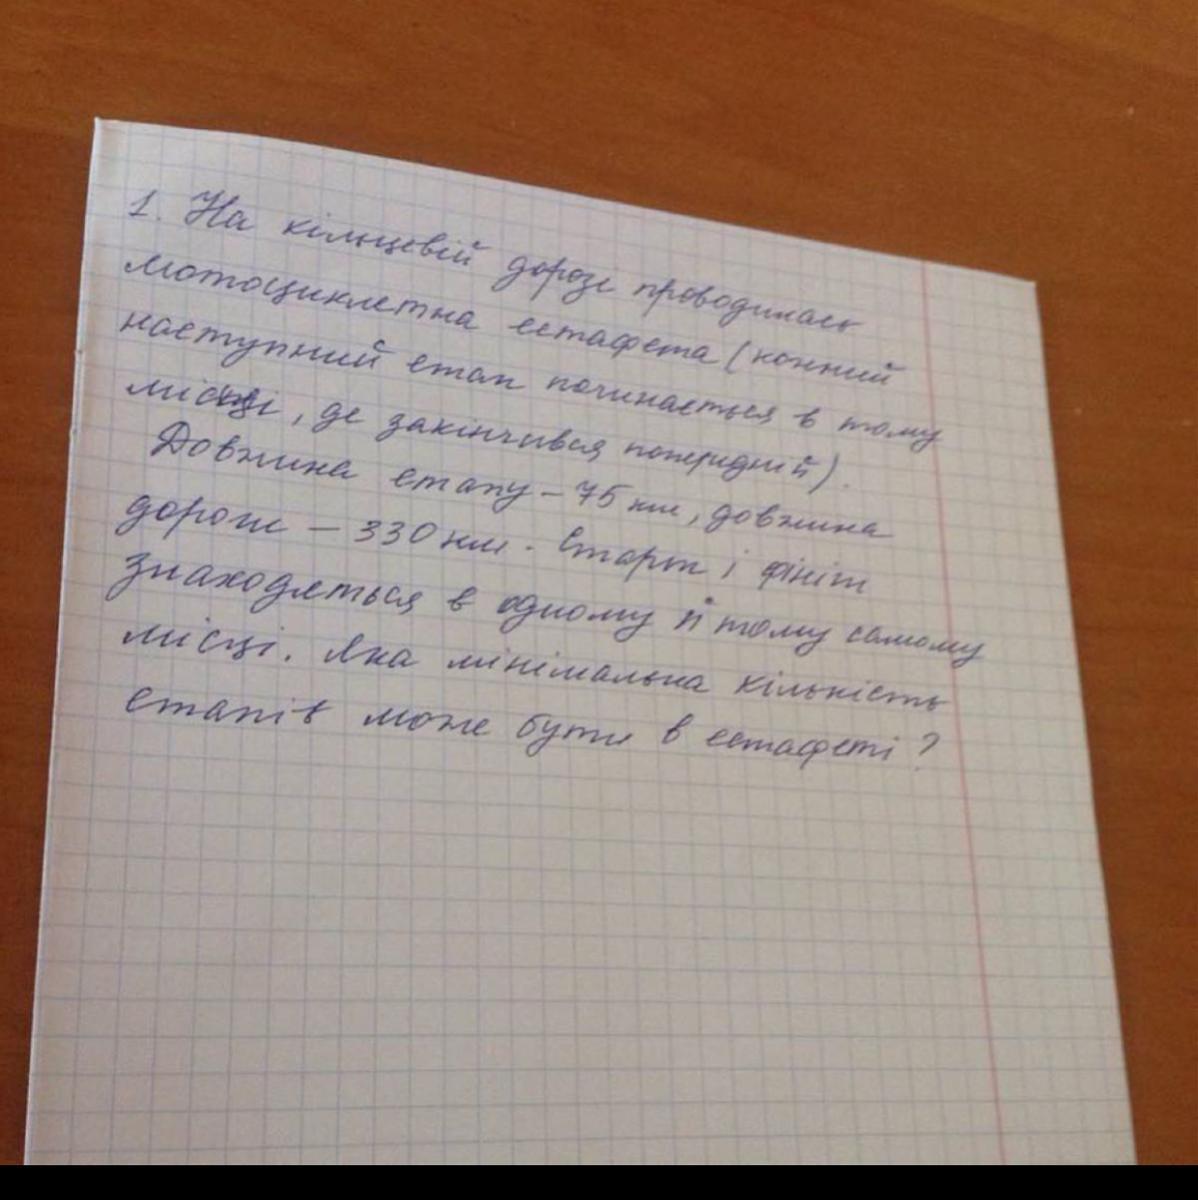 1. На кільцевій дорозі проводилась
мотоциклетна естафета (кожний
наступний етап починається в тому
місці, де закінчився попередній).
Довжина етапу – 75 км, довжина
дороги – 330 км. Старт і фініш
знаходяться в одному й тому самому
місці. Яка мінімальна кількість
етапів може бути в естафеті?